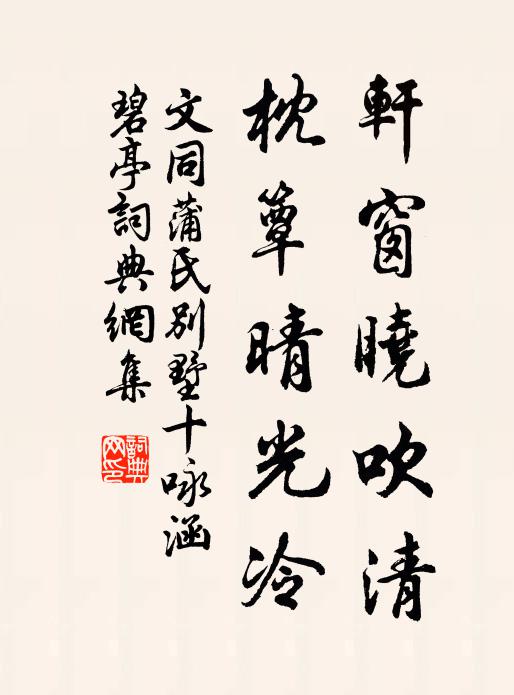 軒窗曉吹清
枕簟晴光冷
文同蒲氏別墅十咏涵
碧亭詞典網集
詞典网印